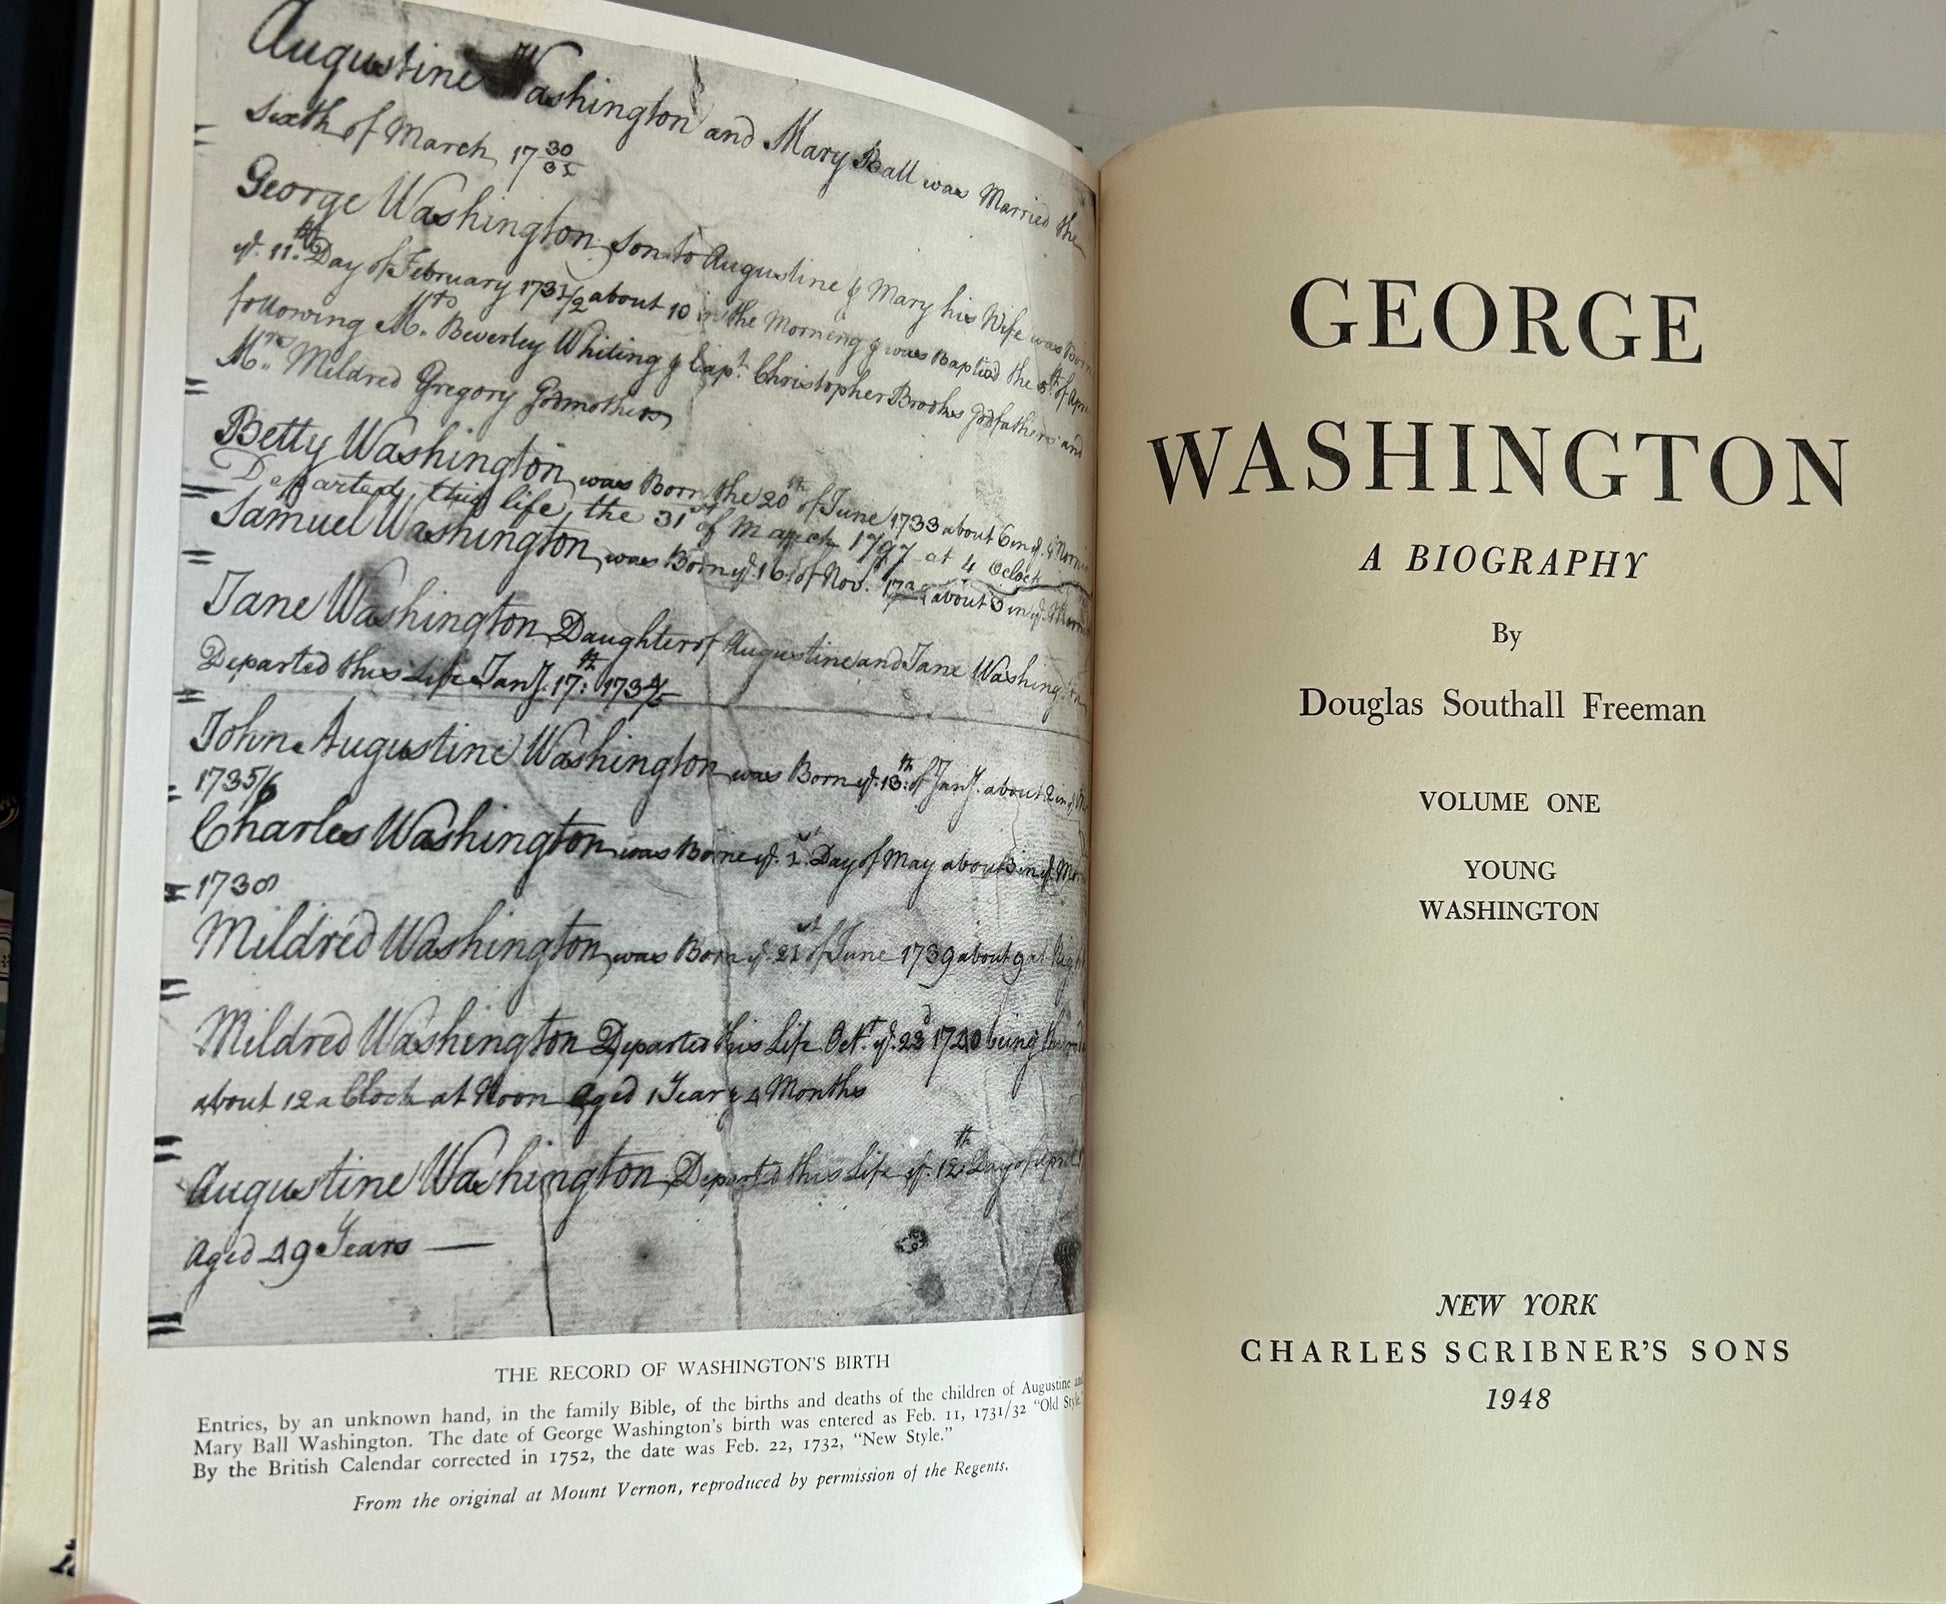 Augustine Washington and Mary Ball was Married the
Sixth of March 17 30/31
George Washington Son to Augustine & Mary his Wife was Born
ye. 11th. Day of February 1731/2 about 10 in the Morning & was Baptised the 5th of April
following Mr. Beverley Whiting & Capt. Christopher Brooks Godfathers and
Mrs. Mildred Gregory Godmother
Betty Washington was Born the 20th of June 1733 about 6 in ye. Morning
Departed this life, the 31st of March 1797 at 4 Oclock
Samuel Washington was Born ye. 16 of Nov. about 3 in ye.
Jane Washington Daughter of Augustine and Jane Washington
Departed this Life Jany. 17th: 1734/5
John Augustine Washington was Born ye. 13th: of Jany. about 2 in
1735/6
Charles Washington was Borne ye. 1st Day of May about 3 in ye. Morn
1738
Mildred Washington was Born ye. 21st of June 1739 about 9 at
Mildred Washington Departed this Life Octr. ye. 23d 1740 being
about 12 a Clock at Noon Aged 1 Year & 4 Months
Augustine Washington Departed this Life ye. 12th Day of April
Aged 49 Years
THE RECORD OF WASHINGTON'S BIRTH
Entries, by an unknown hand, in the family Bible, of the births and deaths of the children of Augustine and
Mary Ball Washington. The date of George Washington's birth was entered as Feb. 11, 1731/32 "Old Style."
By the British Calendar corrected in 1752, the date was Feb. 22, 1732, "New Style."
From the original at Mount Vernon, reproduced by permission of the Regents.
GEORGE
WASHINGTON
A BIOGRAPHY
By
Douglas Southall Freeman
VOLUME ONE
YOUNG
WASHINGTON
NEW YORK
CHARLES SCRIBNER'S SONS
1948